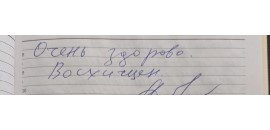 Очень здорово.
Восхищен.